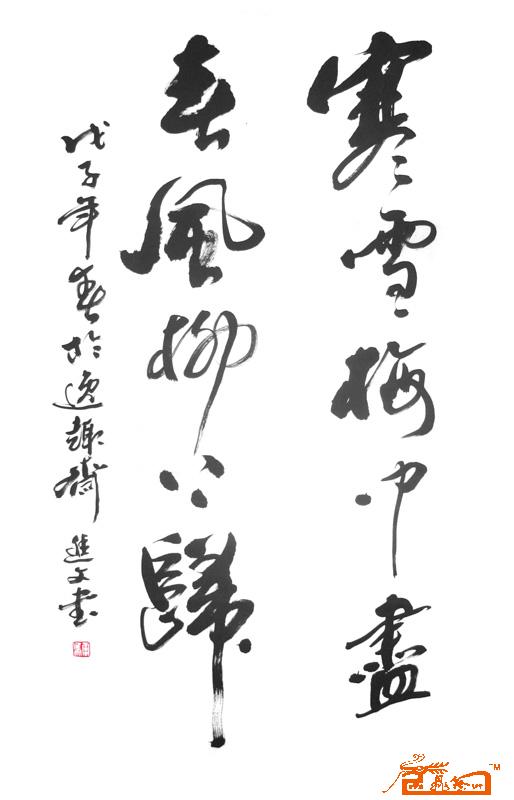 寒雪梅中盡
春風柳上歸
戊子年春於逸趣齋 進文書
TM